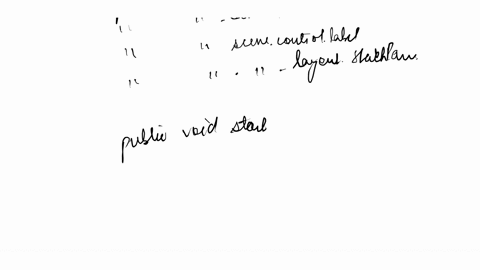 " "
" " scene.control.label
" " . " - layout.StackPane
public void start